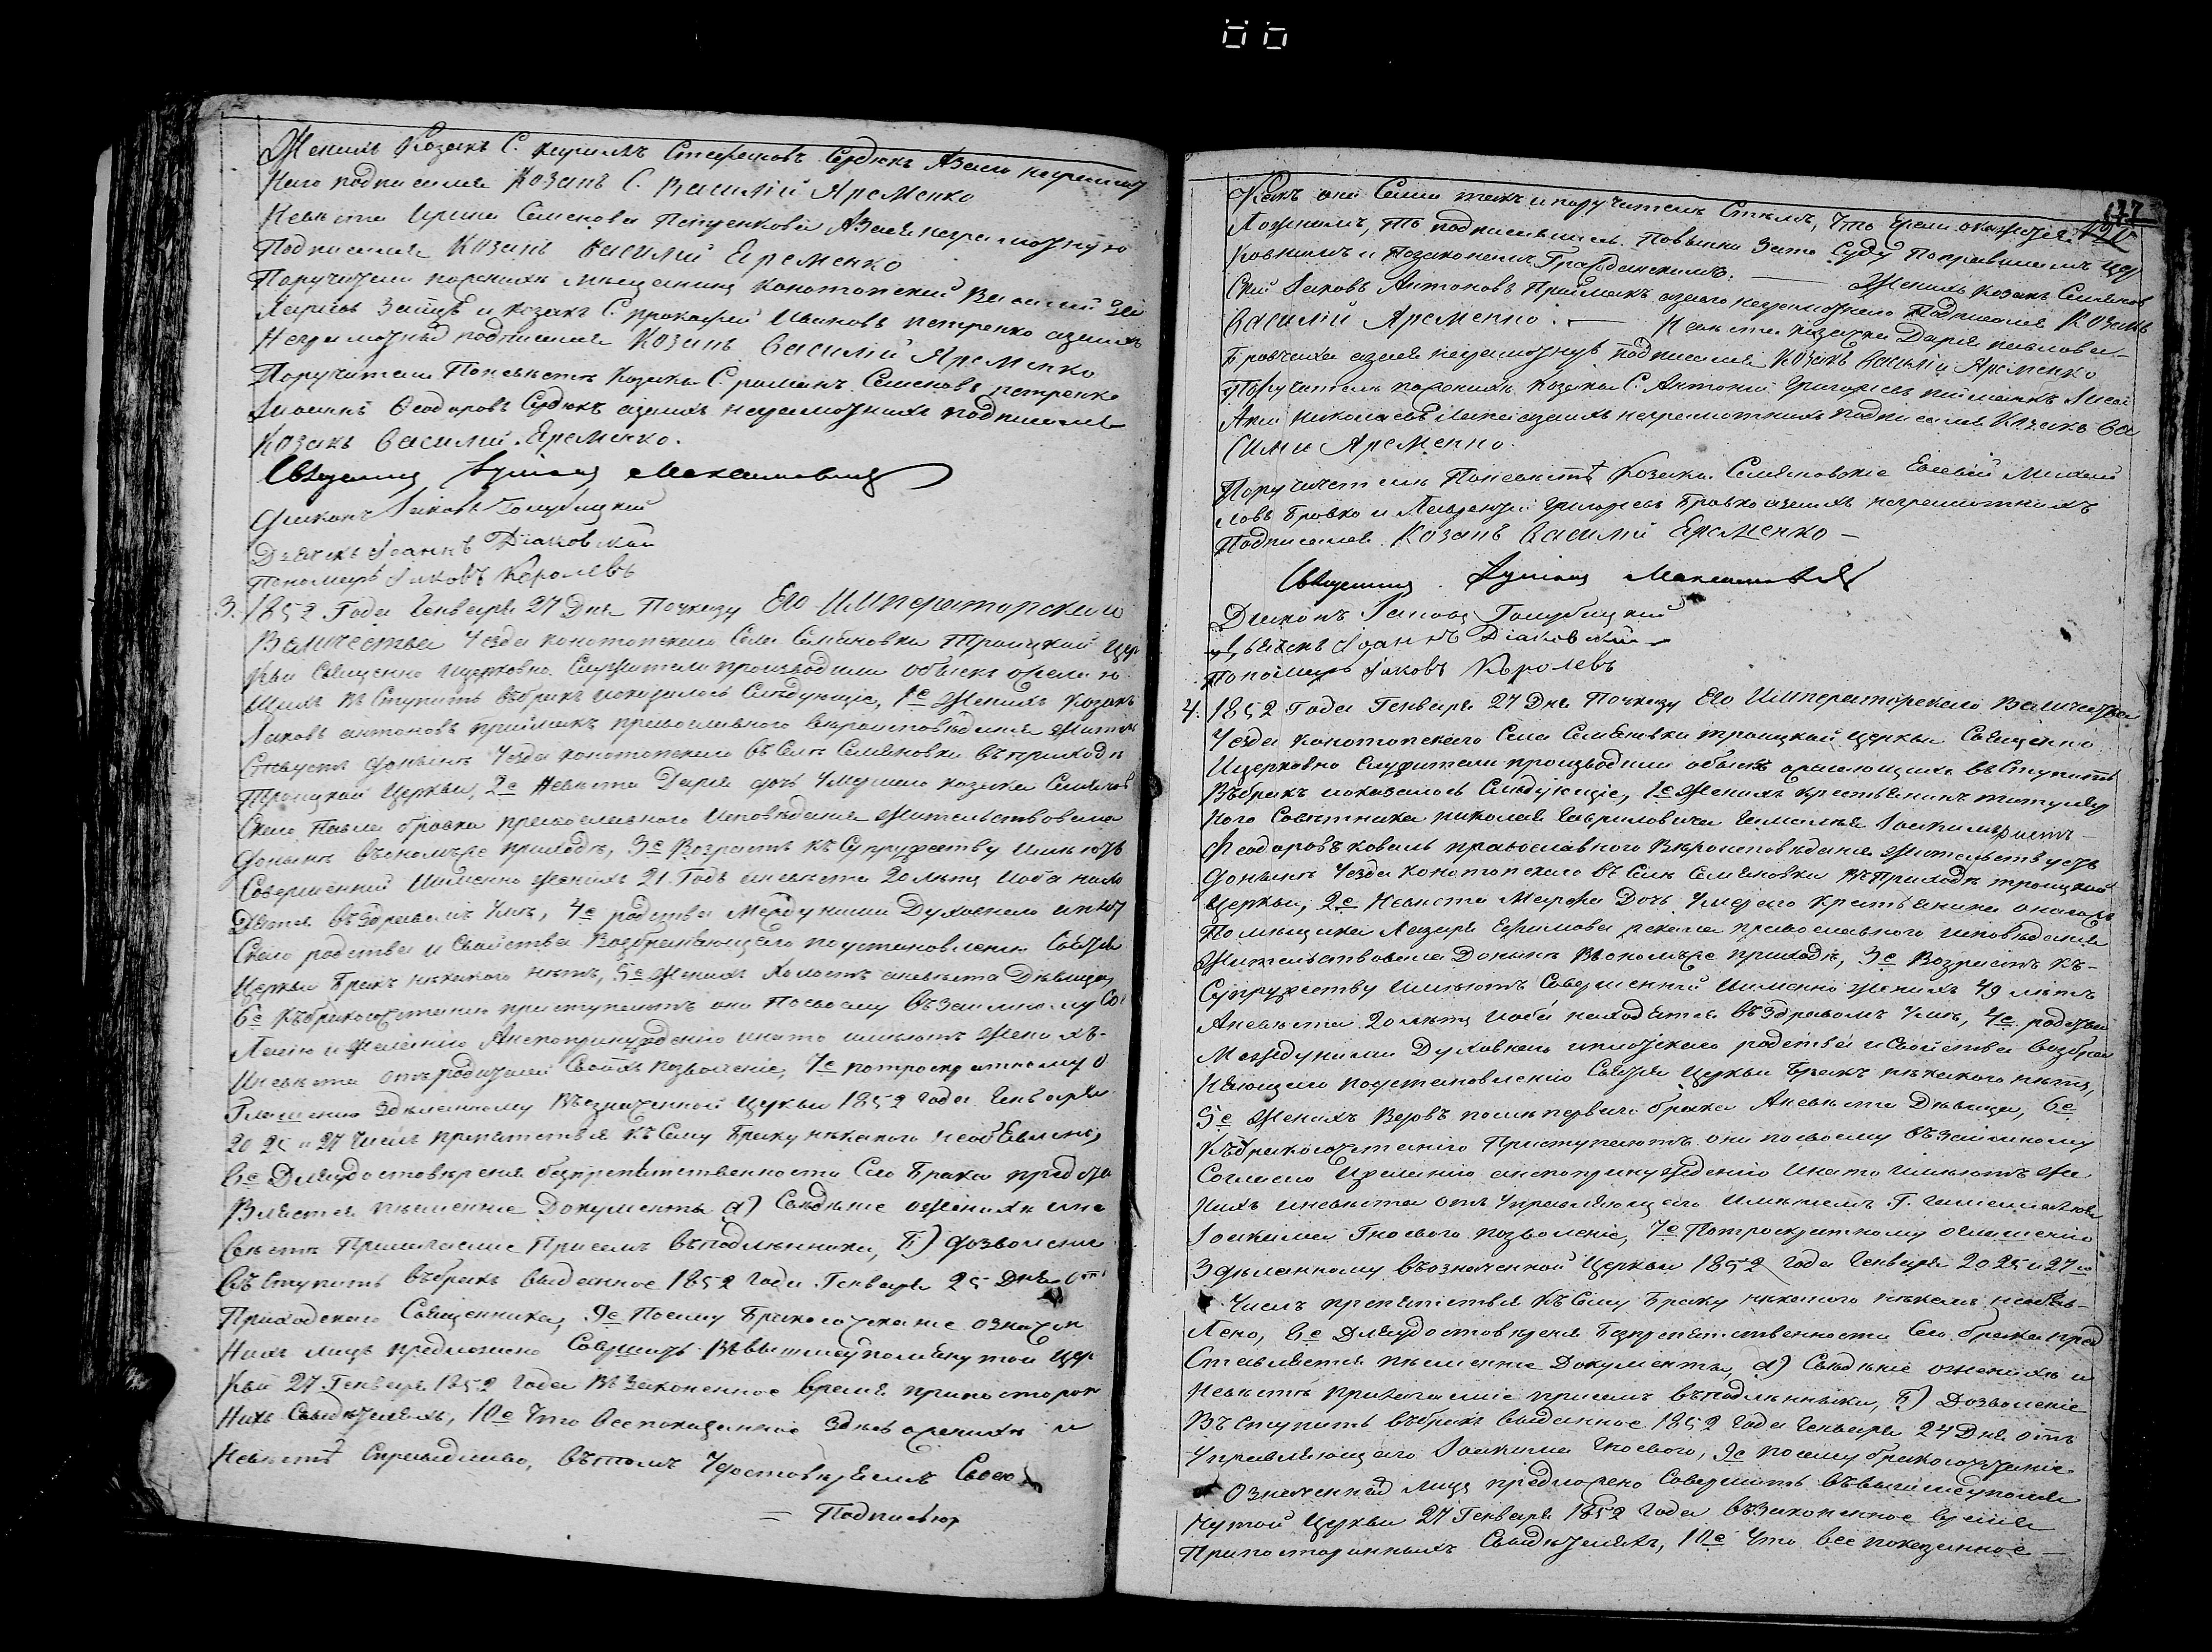 Женихъ Козакъ С. Кирилъ Стефановъ Сердюкъ А за его неграмот
наго подписался Козакъ С. Василій Яременко
Невѣста Ирина Семенова Петренкова А за ея неграмотную
Подписался Козакъ Василий Еременко
Поручители по женихѣ мѣщанинъ Конотопский Василий
Заяцъ и Козакъ С. Прокофий Ивановъ петренко а за ихъ
Неграмотныхъ подписался Козакъ Василий Яременко
Поручители По невѣстѣ Козаки С. романъ Семеновъ петренко
Феодоровъ Сердюкъ а за ихъ неграмотныхъ подписался
Козакъ Василий Еременко.
Священникъ Максимовичъ
Диаконъ Іаковъ Голубицкий
Дьячекъ Іоаннъ Діаковский
Пономарь Іаковъ Королевъ
3. 1852 Года Генваря 27 Дня По указу Его Императорскаго
Величества Уезда Конотопскаго Села Семяновки Троицкой Цер
кви Священно и церковно Служители производили обыскъ о желаю
щихъ въ Ступить въ бракъ и оказалось Слѣдующее, 1е Женихъ Козакъ
Іаковъ Антоновъ приймакъ православного вѣроисповѣдания Жител
Ствуетъ донынѣ Уезда Конотопскаго въ Селѣ Семяновки въ приходѣ
Троицкой Церкви, 2е Невѣста Дарія дочь Умершаго козака Семянов
Скаго Павла бровка православного Исповѣдания Жительствовала
донынѣ въ томъ же приходѣ, 3е Возрастъ къ Супружеству имѣютъ
Совершенный Имянно Женихъ 21. Годъ а невѣста 20 лѣтъ и оба нахо
дятся въ здравомъ Умѣ, 4е родства Между ними Духовнаго и плот
Скаго родства и Свойства Возбраняющаго по установлению Святыя
Церкви Бракъ никакого нѣтъ, 5е Женихъ Холостъ а невѣста Дѣвица,
6е Къ бракосочетанию приступаютъ они По своему Взаимному Со
Гласію и желанію А не по принуждению и на то имѣютъ Жених
И невѣста отъ родителей Своихъ позволение, 7е по троекратному о
Глашению Зделанному Въ означенной Церкви 1852 года Генваря
20 25 и 27 Числъ препятствія къ Сему Браку никакого не объявлено,
8е Для удостовѣрения безпрепятственности Сего Брака предста
Вляются письменные Документы А) Свѣдѣние о женихѣ и не
вѣстѣ Прилагаемые При семъ въ подлинники, Б) дозволение
въ Ступить въ бракъ выданное 1852 года Генваря 25 Дня отъ
Приходскаго Священника, 9е По сему Бракосочетание означен
Ныхъ лицъ предложено Совершить Въ вышеупомянутой Цер
Кви 27 Генваря 1852 года Въ Законенное Время при посторон
Нихъ Свидѣтеляхъ, 10е Что все показанное Здесь о женихѣ и
Невѣстѣ Справедливо, въ томъ Удостовѣряемъ Своею
= Подписью
177
Какъ они Сами такъ и поручители Стѣмъ, Что Ежели окажется
Ложнымъ, То подписавшиеся Повинни За то Суду По правиламъ Цер
Ковнымъ и По законамъ Гражданскимъ. — Женихъ Козакъ Семянов
Ский Іаковъ Антоновъ Приймакъ а за его неграмотнаго Подписался Козакъ
Василий Яременко. — Невѣста козачка Дарія Павлова
Бровчиха а за ея неграмотную подписался Козакъ Василий Яременко
Поручители по женихѣ Козаки С. Антоний Григориевъ
Николаевъ а за ихъ неграмотныхъ подписался Козакъ Ва
Силий Яременко.
Поручители По невѣстѣ Козаки Семяновские Евсевий Михай
ловъ Бровко и Лаврентий Григориевъ Бровко а за ихъ неграмотныхъ
Подписался Козакъ Василий Еременко —
Священникъ Максимовичъ
Диаконъ Іаковъ Голубицкий
Дьячекъ Іоаннъ Діаковский
Пономарь Іаковъ Королевъ
4. 1852 Года Генваря 27 Дня По указу Его Императорскаго Величества
Уезда Конотопскаго Села Семяновки троицкой Церкви Священно
И церковно Служители производили обыскъ о желающихъ въ Ступить
Въ бракъ и оказалось Слѣдующее, 1е Женихъ крестьянинъ титуляр
ного Совѣтника Николая Гавриловича
Феодоровъ коваль православного Вѣроисповѣдания Жительствуетъ
донынѣ Уезда Конотопскаго въ Селѣ Семяновки Въ Приходѣ троицкой
Церкви, 2е Невѣста Марфа Дочь Умершаго крестьянина онаго же
Помѣщика Лазаря Ефимова православного исповѣдания
Жительствовала Донынѣ Въ томъ же приходѣ, 3е Возрастъ къ
Супружеству имѣютъ Совершенный Имянно Женихъ 49 лѣтъ
А невѣста 20 лѣтъ и оба находятся въ здравомъ Умѣ, 4е родства
Между ними Духовнаго и плотскаго родства и Свойства Возбра
няющаго по установлению Святыя Церкви Бракъ никакого нѣтъ,
5е Женихъ Вдовъ послѣ первого брака А невѣста Дѣвица, 6е
Къ бракосочетанію Приступаютъ они по своему Взаимному
Согласію И желанію а не по принуждению И на то имѣютъ Же
нихъ и невѣста отъ Управляющаго Имѣниемъ Г.
Іоакима Гноеваго позволение, 7е По троекратному оглашению
Зделанному въ означенной Церкви 1852 года Генваря 20 25 и 27
Числъ препятствія къ Сему Браку никакого никемъ необъяв-
лено, 8е Для удостовѣрения Безпрепятственности Сего брака пред
Ставляются письменные Документы, А) Свѣдѣние о женихѣ и
Невѣстѣ прилагаемые при семъ въ подлинники, Б) Дозволение
Въ ступить въ бракъ выданное 1852 года Генваря 24 Дня отъ
Управляющаго Іоакима Гноеваго, 9е По сему бракосочетание
Означенныхъ лицъ предложено Совершить въ вышеупомя
нутой Церкви 27 Генваря 1852 года въ Законенное Время
При посторонныхъ Свидѣтеляхъ, 10е Что все показанное —